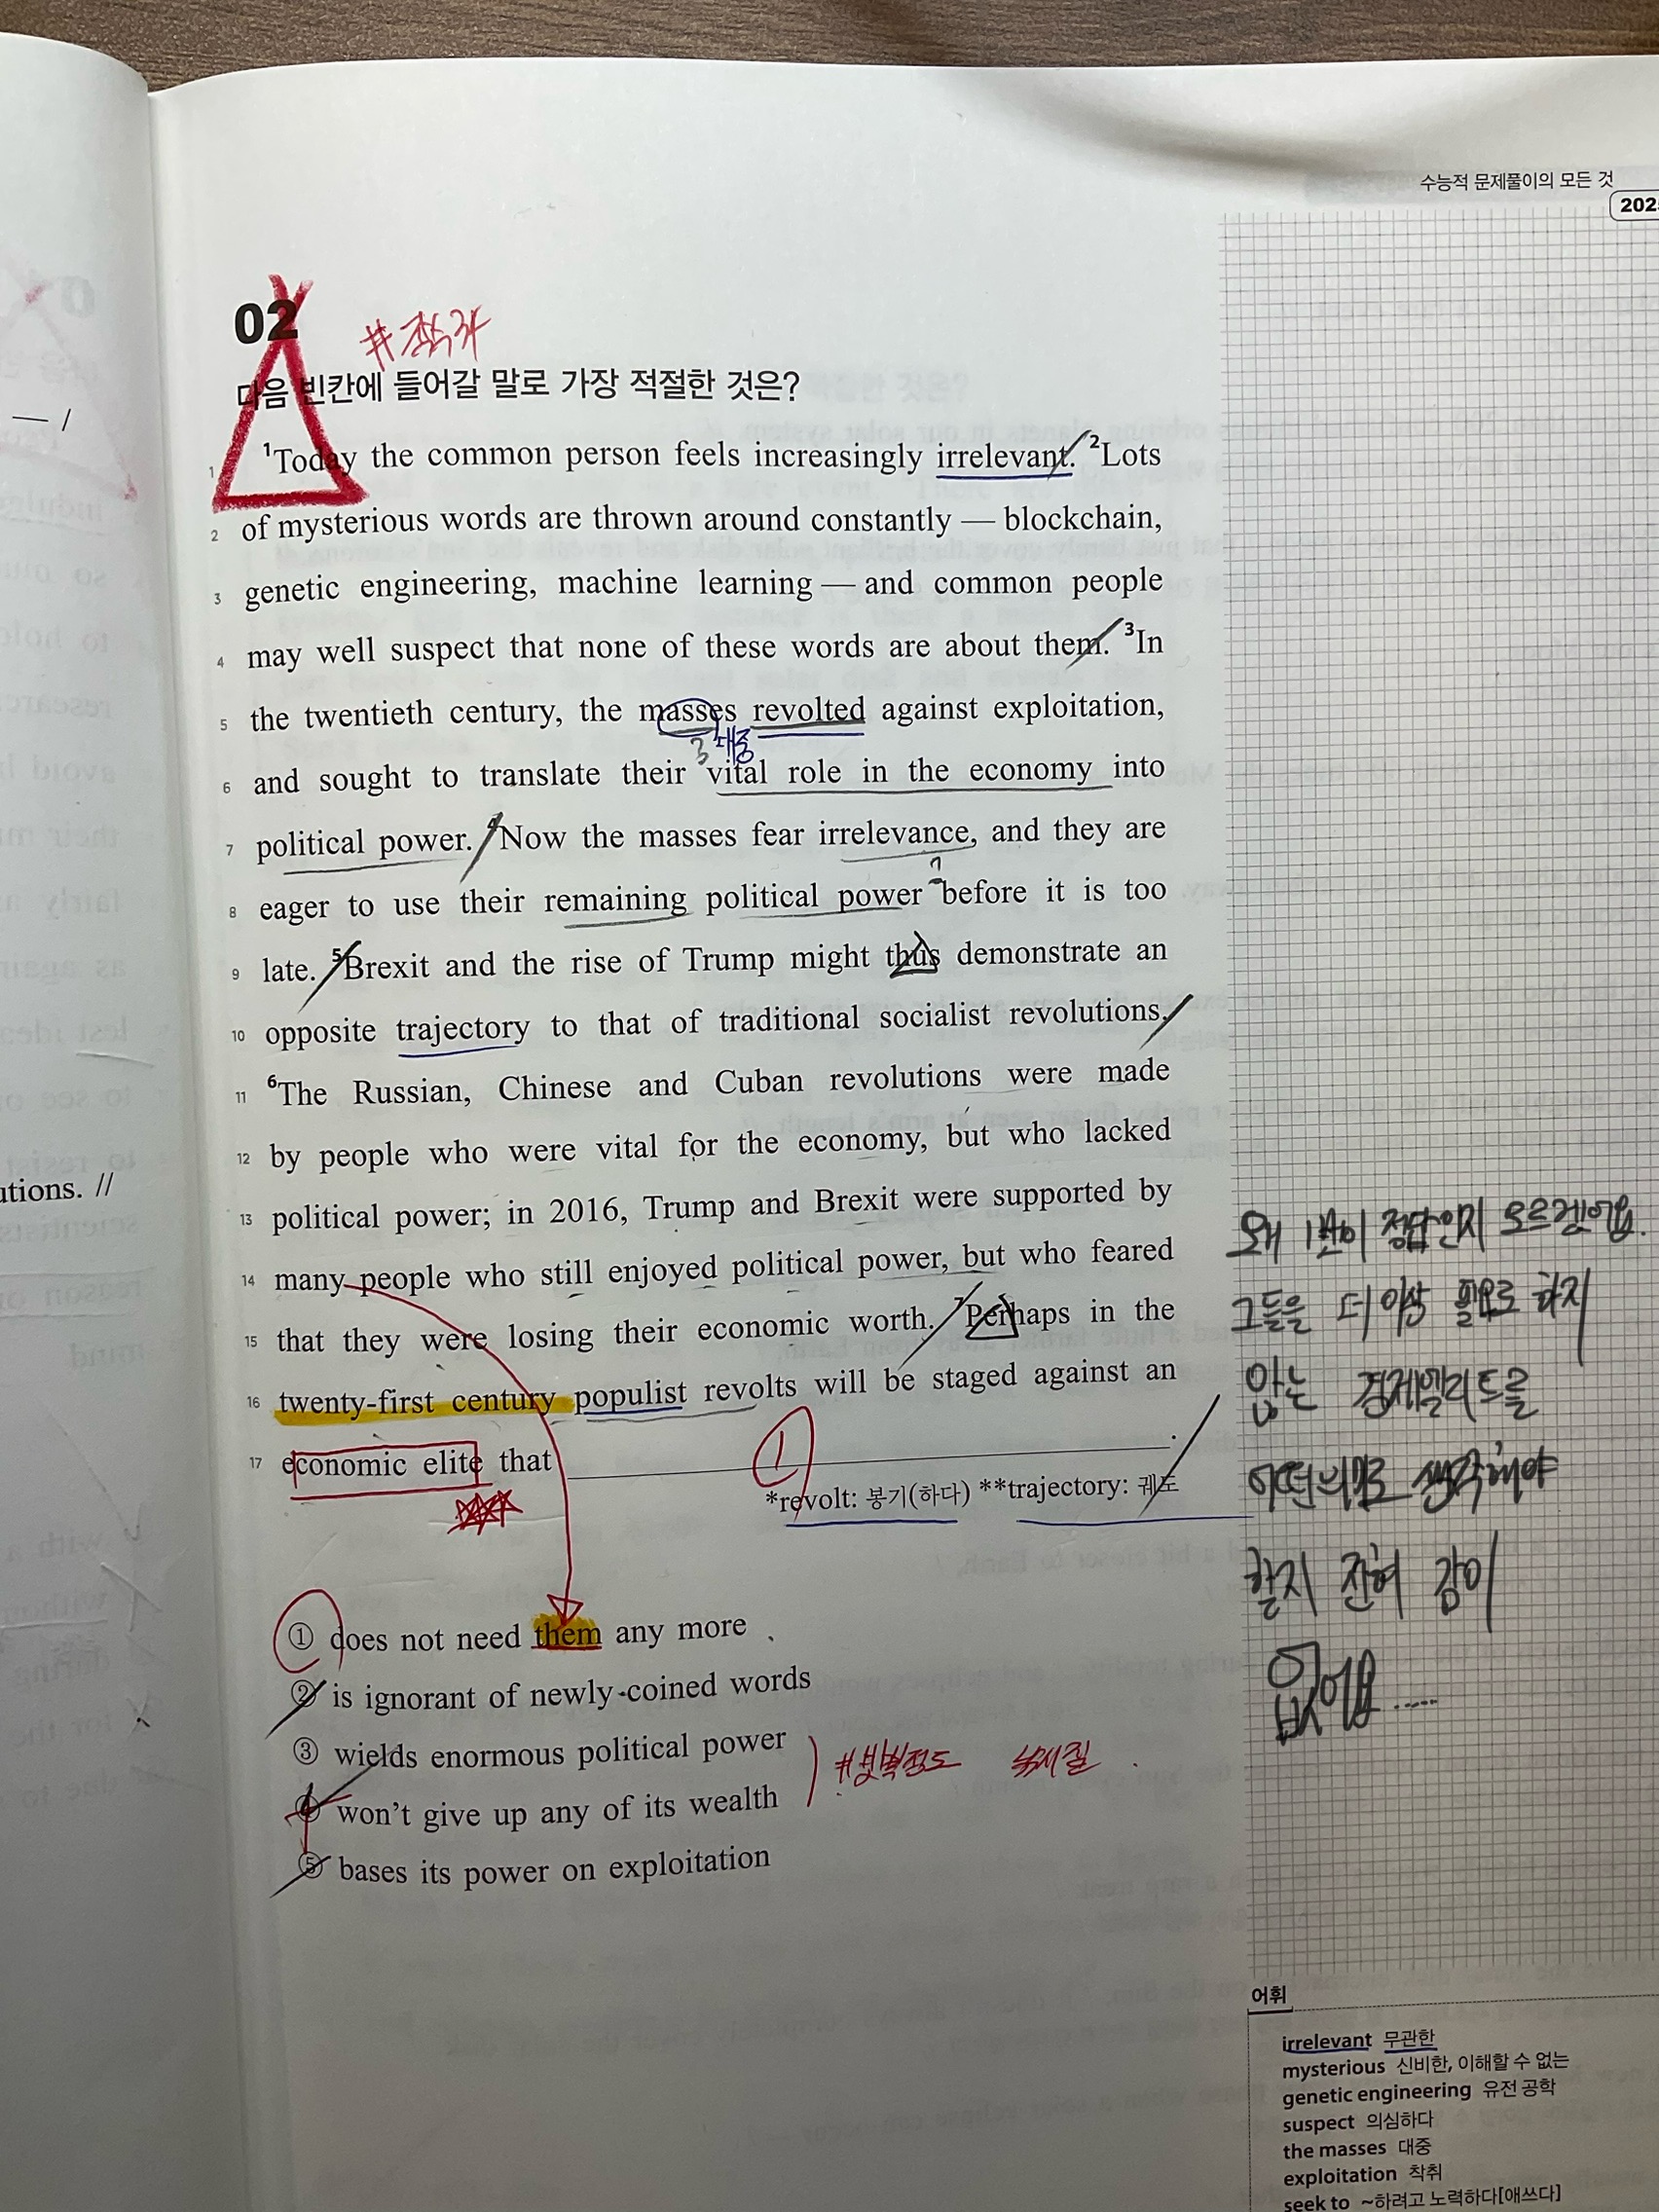 수능적 문제풀이의 모든 것
202
02
다음 빈칸에 들어갈 말로 가장 적절한 것은?
1 ¹Today the common person feels increasingly irrelevant. ²Lots
2 of mysterious words are thrown around constantly — blockchain,
3 genetic engineering, machine learning — and common people
4 may well suspect that none of these words are about them. ³In
5 the twentieth century, the masses revolted against exploitation,
대중
6 and sought to translate their vital role in the economy into
7 political power. ⁴Now the masses fear irrelevance, and they are
8 eager to use their remaining political power before it is too
9 late. ⁵Brexit and the rise of Trump might thus demonstrate an
10 opposite trajectory to that of traditional socialist revolutions.
11 ⁶The Russian, Chinese and Cuban revolutions were made
12 by people who were vital for the economy, but who lacked
13 political power; in 2016, Trump and Brexit were supported by
14 many people who still enjoyed political power, but who feared
15 that they were losing their economic worth. ⁷Perhaps in the
16 twenty-first century populist revolts will be staged against an
17 economic elite that ______.
①
*revolt: 봉기(하다) **trajectory: 궤도
① does not need them any more
② is ignorant of newly-coined words
③ wields enormous political power
④ won't give up any of its wealth
⑤ bases its power on exploitation
왜 1번이 정답인지 모르겠어요.
그들을 더이상 필요로 하지
않는 경제엘리트를
어떤 의미로 생각해야
할지 전혀 감이
없어요.....
어휘
irrelevant 무관한
mysterious 신비한, 이해할 수 없는
genetic engineering 유전 공학
suspect 의심하다
the masses 대중
exploitation 착취
seek to ~하려고 노력하다[애쓰다]
utions. //